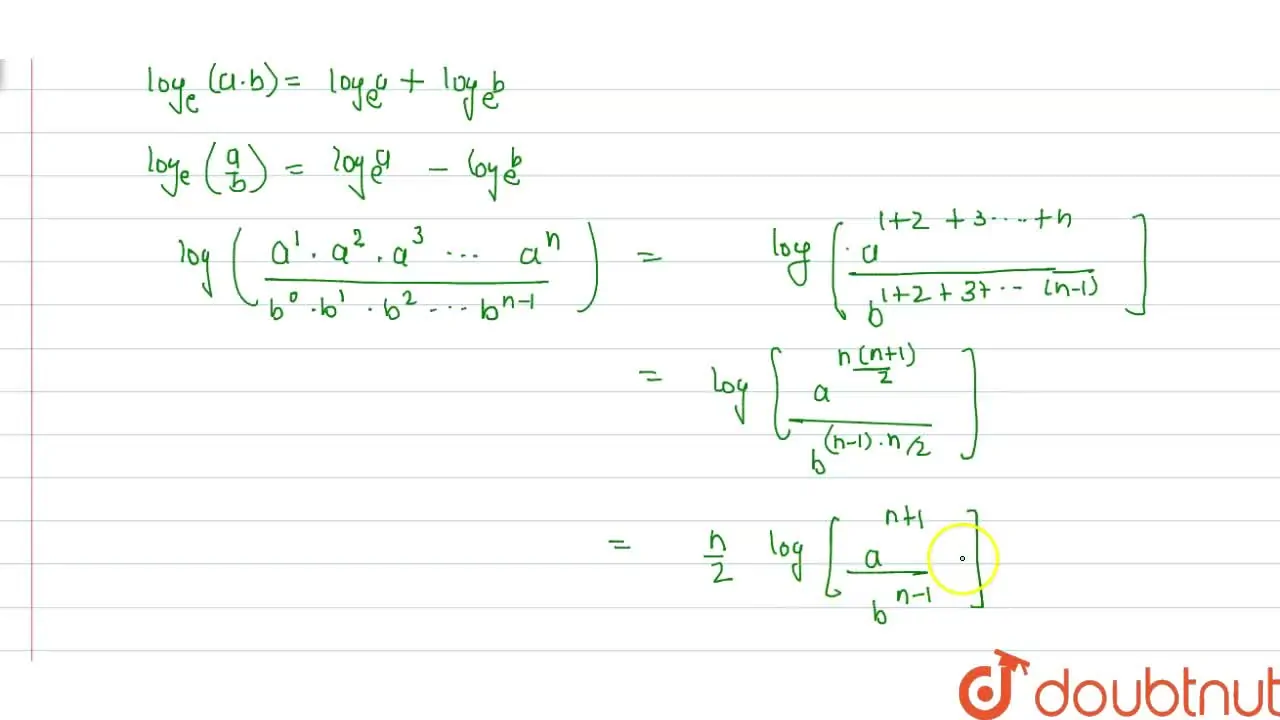 logₑ (a·b) = logₑ a + logₑ b
logₑ (a/b) = logₑ a − logₑ b
log ( (a¹ · a² · a³ ··· aⁿ) / (b⁰ · b¹ · b² ··· bⁿ⁻¹) ) = log [ · a^(1+2+3····+n) / b^(1+2+3+··· (n−1)) ]
= log [ a^(n(n+1)/2) / b^((n−1)·n/2) ]
= n/2 log [ a^(n+1) / b^(n−1) ]
doubtnut